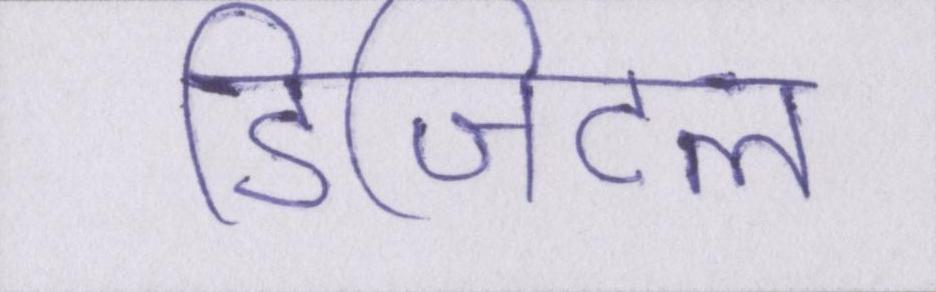 डिजिटल